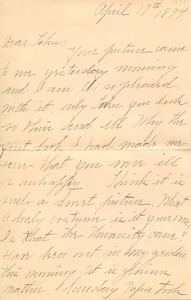 April 17th 1894
Dear John:
Your picture came
to me yesterday morning
and I am so pleased
with it only John you look
so thin and ill. Why the
first look I had made me
fear that you were ill
or unhappy. I think it is
such a smart picture. What
a lovely costume is it your own
Is that the University cane?
Have been out in my garden
this morning it is
mother. Sunday Papa took